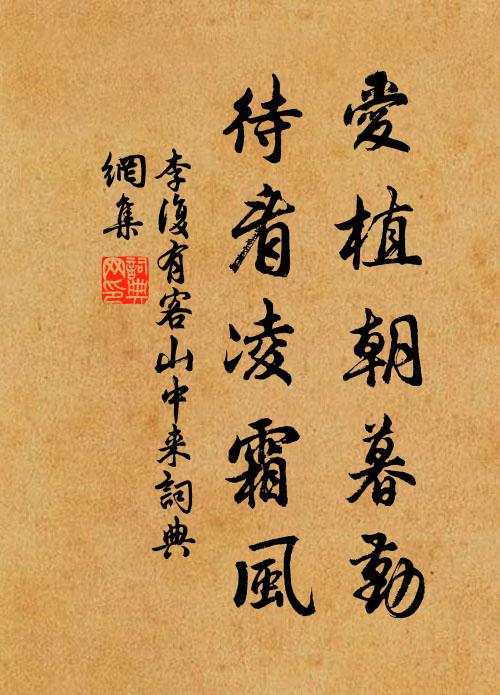 愛植朝暮勤
待看凌霜風
李復有客山中来詞典
網集
詞典網印